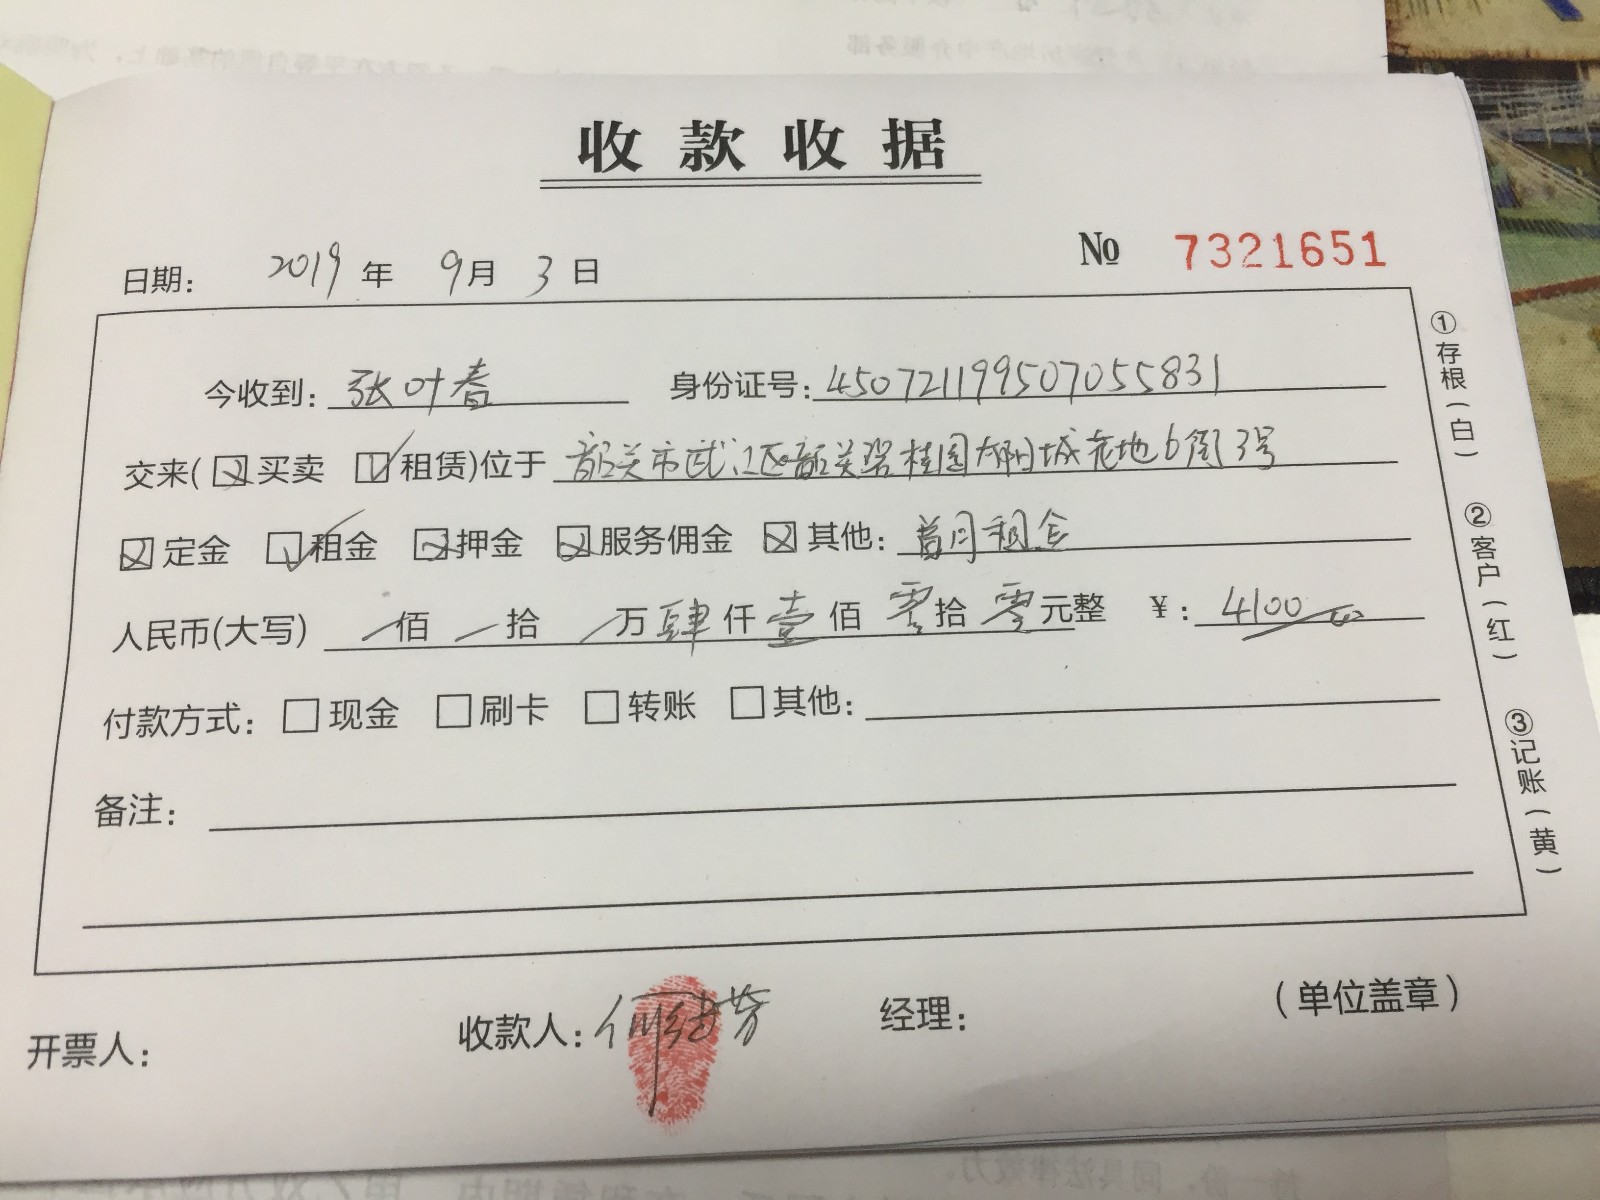 收款收据
日期: 2019年 9月 3日 № 7321651
今收到: 张叶春 身份证号: 450721199507055831
交来(☒买卖 ☑租赁)位于 韶关市武江区韶关碧桂园太阳城花地6街3号
☒定金 ☑租金 ☒押金 ☒服务佣金 ☒其他: 首月租金
人民币(大写) /佰 /拾 /万肆仟壹佰零拾零元整 ¥: 4100元
付款方式: □现金 □刷卡 □转账 □其他:
备注:
开票人: 收款人: 何 芳 经理: (单位盖章)
①存根(白) ②客户(红) ③记账(黄)